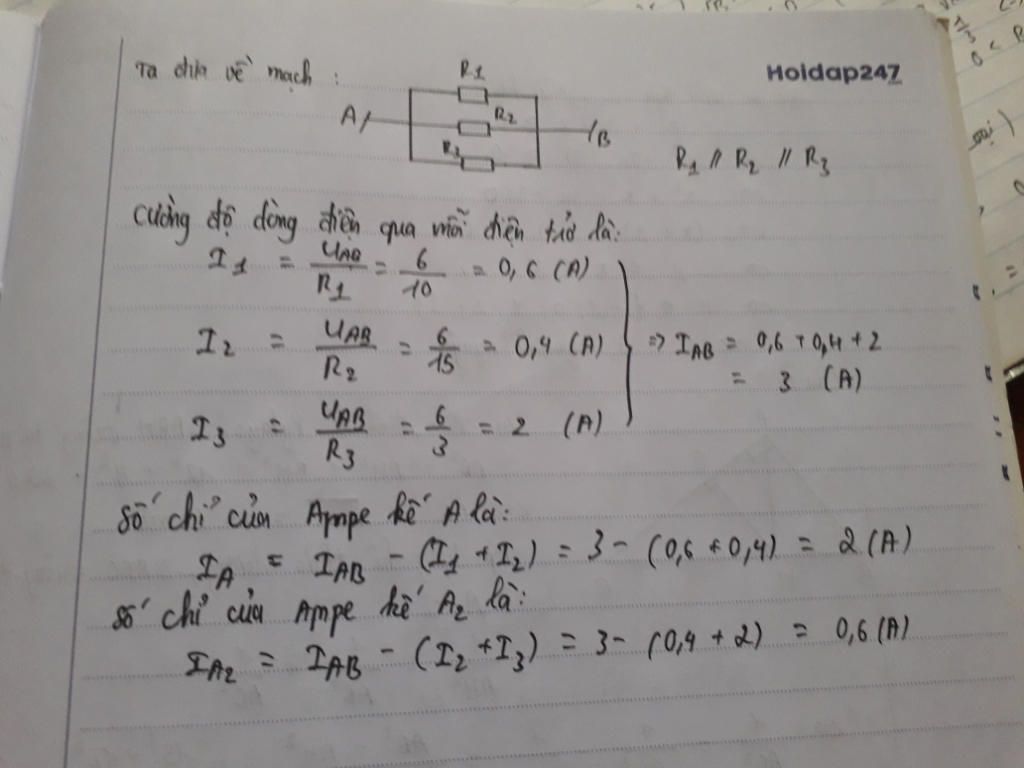 Ta đưa về mạch :
Hoidap247
R1
A
R2
B
R3
R1 // R2 // R3
Cường độ dòng điện qua mỗi điện trở là:
I1 = UAB/R1 = 6/10 = 0,6 (A)
I2 = UAB/R2 = 6/15 = 0,4 (A)
=> IAB = 0,6 + 0,4 + 2
= 3 (A)
I3 = UAB/R3 = 6/3 = 2 (A)
Số chỉ của Ampe kế A là:
IA = IAB - (I1 + I2) = 3 - (0,6 + 0,4) = 2 (A)
Số chỉ của Ampe kế A2 là:
IA2 = IAB - (I2 + I3) = 3 - (0,4 + 2) = 0,6 (A)